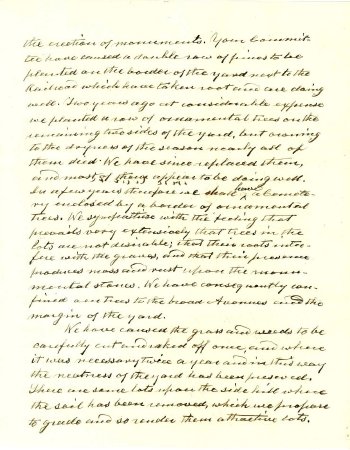 the erection of monuments. Your Commit-
tee have caused a double row of pines to be
planted on the border of the yard next to the
Railroad which have taken root and are doing
well. Two years ago at considerable expense
we planted a row of ornamental trees on the
remaining two sides of the yard, but owing
to the dryness of the season nearly all of
them died. We have since replaced them,
and most of them appear to be doing well.
In a few years therefore we shall have a Ceme-
ry enclosed by a border of ornamental
trees. We sympathise with the feeling that
prevails very extensively that trees in the
lots are not desirable; that their roots inter-
fere with the graves, and that their presence
produces moss and rust upon the monu-
mental stones. We have consequently con-
fined our trees to the broad Avenues and the
margin of the yard.
We have caused the grass and weeds to be
carefully cut and raked off once, and where
it was necessary twice a year and in this way
the neatness of the yard has been preserved.
There are some lots upon the side hill where
the soil has been removed, which we propose
to grade and so render them attractive lots.